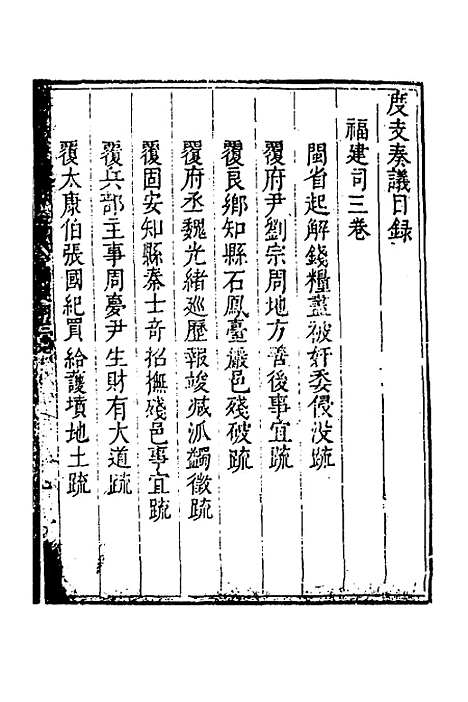 度支奏議目錄
福建司三卷
閩省起解錢糧盡被奸委侵沒疏
覆府尹劉宗周地方善後事宜疏
覆良鄉知縣石鳳臺巖邑殘破疏
覆府丞魏光緒巡歷報竣減派蠲徵疏
覆固安知縣秦士奇招撫殘邑事宜疏
覆兵部主事周慶尹生財有大道疏
覆太康伯張國紀買給護墳地土疏